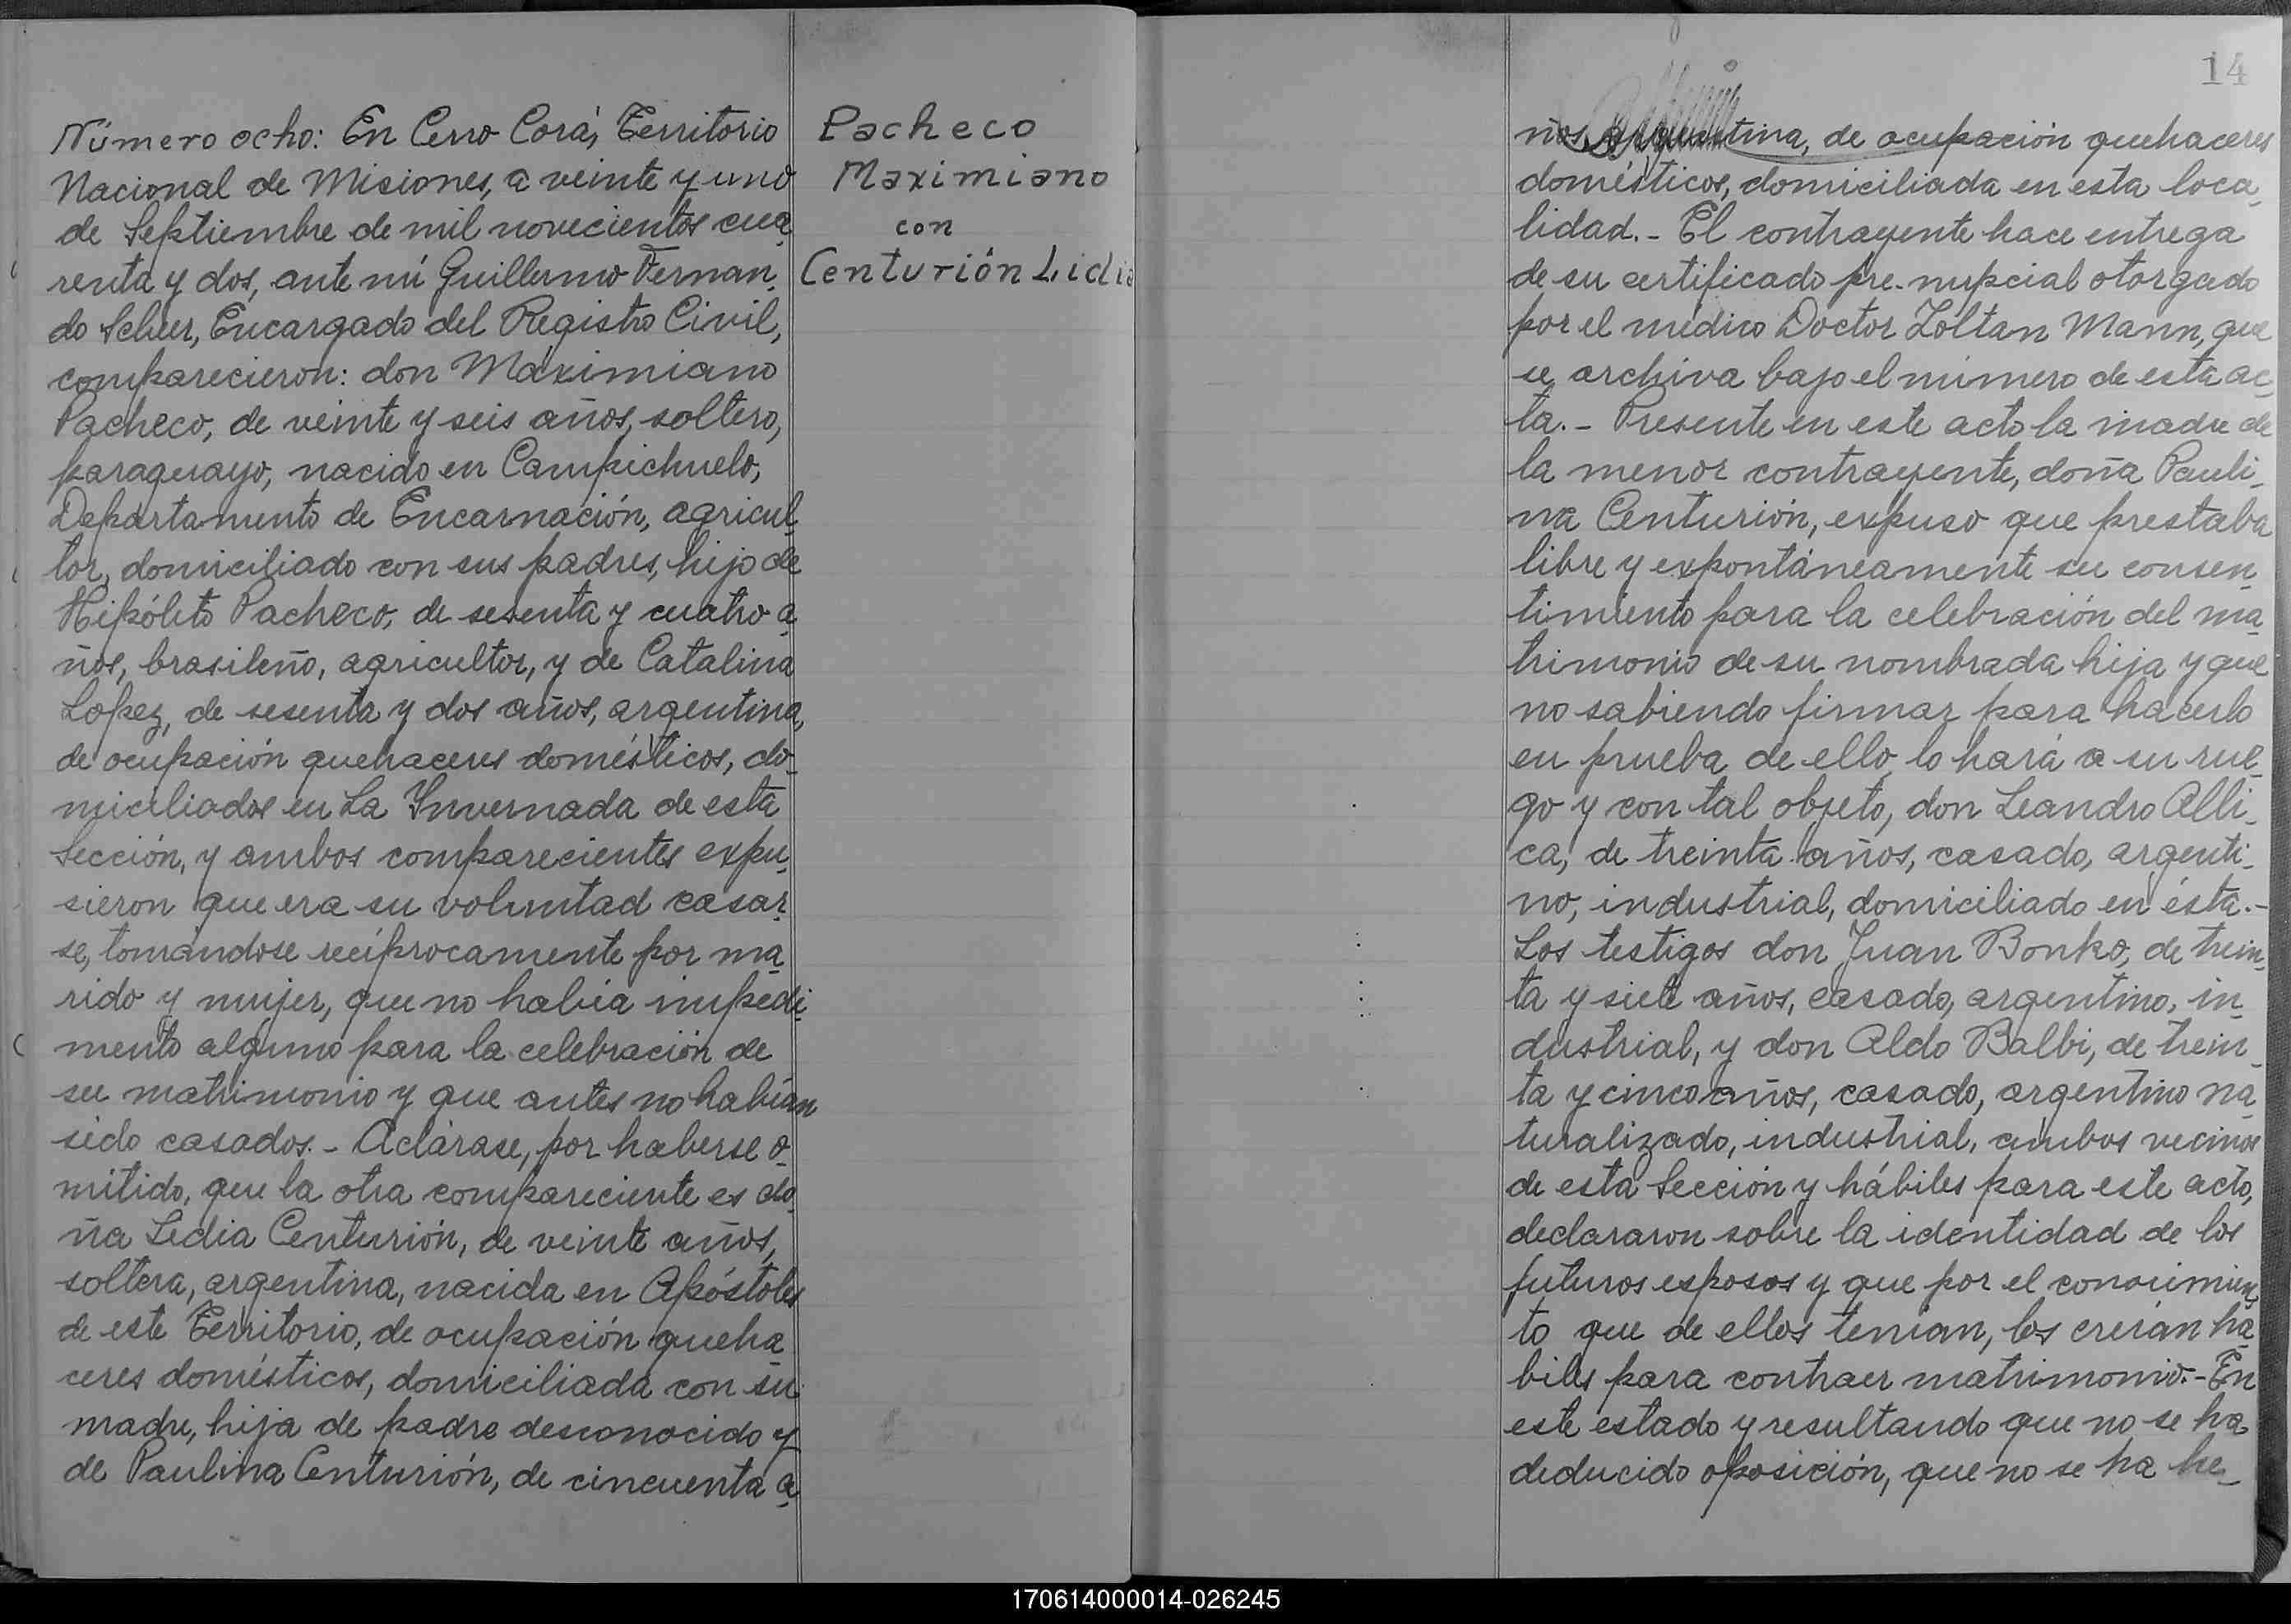 Número ocho: En Cerro Corá, Territorio
Nacional de Misiones, a veinte y uno
de Septiembre de mil novecientos cua_
renta y dos, ante mí Guillermo Fernan_
do Scheer, Encargado del Registro Civil,
comparecieron: don Maximiano
Pacheco, de veinte y seis años, soltero,
paraguayo, nacido en Campichuelo,
Departamento de Encarnación, agricul_
tor, domiciliado con sus padres, hijo de
Hipólito Pacheco, de sesenta y cuatro a_
ños, brasileño, agricultor, y de Catalina
Lopez, de sesenta y dos años, argentina,
de ocupación quehaceres domésticos, do_
miciliados en La Invernada de esta
Sección, y ambos comparecientes expu_
sieron que era su voluntad casar_
se, tomándose recíprocamente por ma_
rido y mujer, que no había impedi_
mento alguno para la celebración de
su matrimonio y que antes no habían
sido casados.- Aclárase, por haberse o_
mitido, que la otra compareciente es do_
ña Lidia Centurión, de veinte años,
soltera, argentina, nacida en Apóstoles
de este Territorio, de ocupación queha_
ceres domésticos, domiciliada con su
madre, hija de padre desconocido y
de Paulina Centurión, de cincuenta a_
Pacheco
Maximiano
con
Centurión Lidia
14
ños, argentina, de ocupación quehaceres
domésticos, domiciliada en esta loca_
lidad.- El contrayente hace entrega
de su certificado pre-nupcial otorgado
por el médico Doctor Zoltan Mann, que
se archiva bajo el número de esta ac_
ta.- Presente en este acto la madre de
la menor contrayente, doña Pauli_
na Centurión, expuso que prestaba
libre y expontáneamente su consen_
timiento para la celebración del ma_
trimonio de su nombrada hija y que
no sabiendo firmar para hacerlo
en prueba de ello, lo hará a su rue_
go y con tal objeto, don Leandro Alli_
ca, de treinta años, casado, argenti_
no, industrial, domiciliado en ésta.-
Los testigos don Juan Bonko, de trein_
ta y siete años, casado, argentino, in_
dustrial, y don Aldo Balbi, de trein_
ta y cinco años, casado, argentino na_
turalizado, industrial, ambos vecinos
de esta Sección y hábiles para este acto,
declararon sobre la identidad de los
futuros esposos y que por el conocimien_
to que de ellos tenían, los creían há_
biles para contraer matrimonio.- En
este estado y resultando que no se ha
deducido oposición, que no se ha he_
170614000014-026245